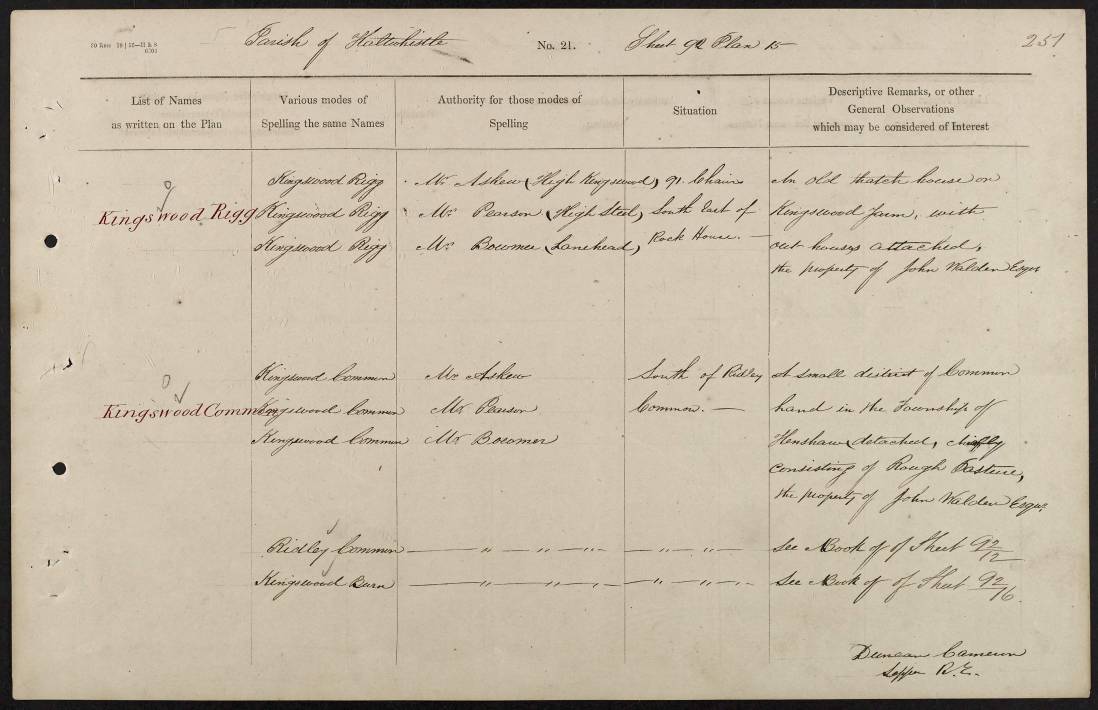 Parish of Haltwhistle No. 21. Sheet 92 Plan 15 251
List of Names
as written on the Plan
Various modes of
Spelling the same Names
Authority for those modes of
Spelling
Situation
Descriptive Remarks, or other
General Observations
which may be considered of Interest
Kingswood Rigg Mr. Askew (High Kingswood) 91. Chains An old thatch house on
Kingswood Rigg Kingswood Rigg Mr. Pearson (High Steel) South East of Kingswood Farm, with
Kingswood Rigg Mr. Bowmer (Lanehead) Rock House. — out houses attached,
the property of John Walden Esqr
Kingswood Common Mr. Askew South of Ridley A small district of Common
Kingswood Common Kingswood Common Mr. Pearson Common. — Land in the Township of
Kingswood Common Mr Bowmer Henshaw (detached, chiefly
consisting of Rough Pasture,
the property of John Walden Esqr.
Ridley Common — " — " — " — — " — " — See Book of of Sheet 92/12
Kingswood Burn — " — " — " — — " — " — See Book of of Sheet 92/6.
Duncan Cameron
Sapper R.E.